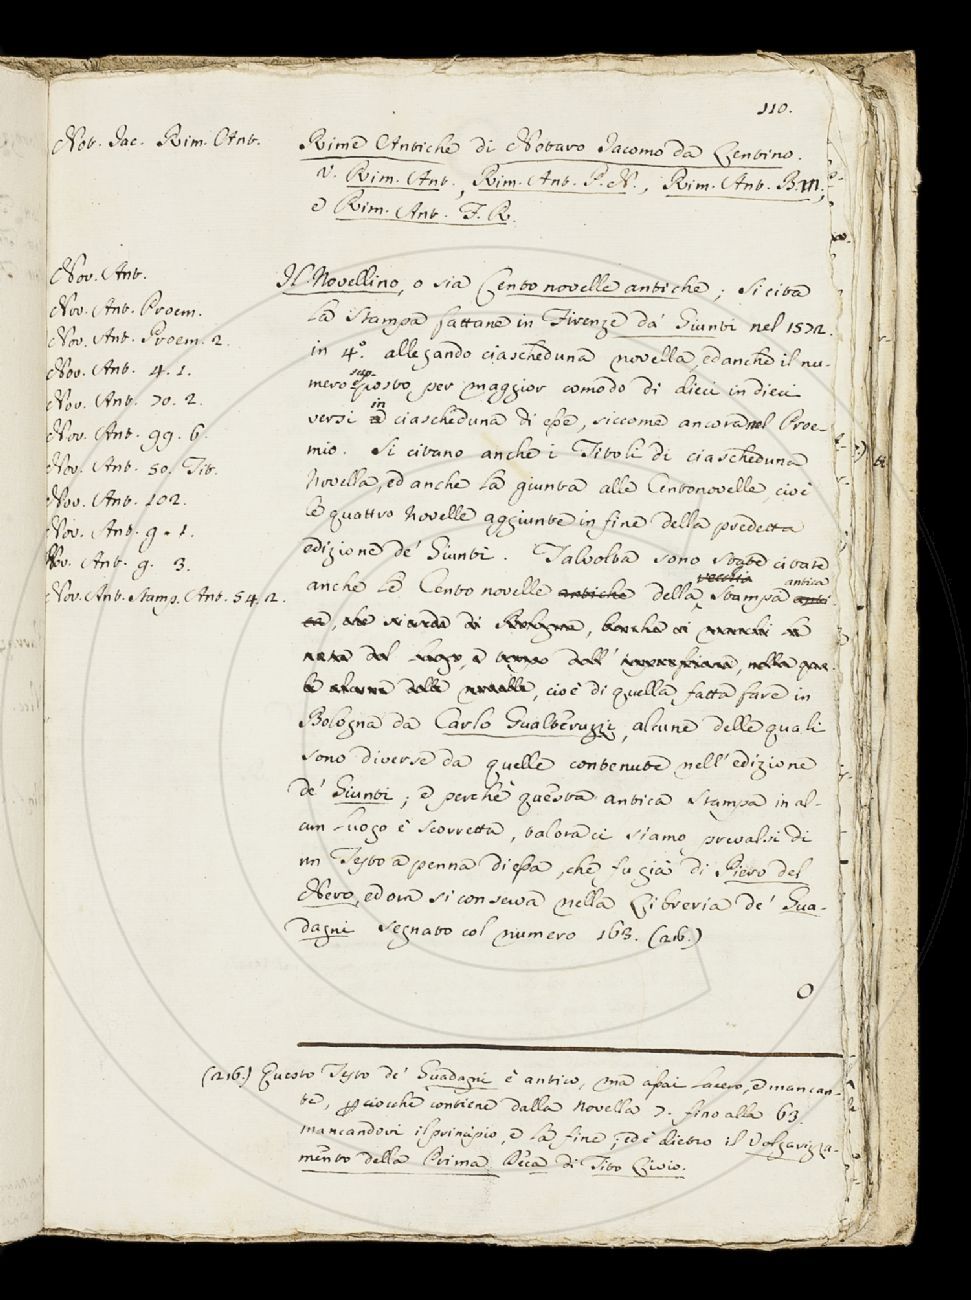 110.
Not. Jac. Rim. Ant.
Rime Antiche di Notaro Jacomo da Lentino.
v. Rim. Ant., Rim. Ant. P. N., Rim. Ant. B. M.,
e Rim. Ant. F. R.
Nov. Ant.
Nov. Ant. Proem.
Nov. Ant. Proem. 2.
Nov. Ant. 4. 1.
Nov. Ant. 70. 2.
Nov. Ant. 99. 6.
Nov. Ant. 50. Tit.
Nov. Ant. 102.
Nov. Ant. g. 1.
Nov. Ant. g. 3.
Nov. Ant. Stamp. Ant. 54. 2.
Il Novellino, o sia Cento novelle antiche; si cita
la Stampa fattane in Firenze da' Giunti nel 1572.
in 4.° allegando ciascheduna novella, ed anche il nu-
mero sup. posto per maggior comodo di dieci in dieci
versi in ciascheduna di esse, siccome ancora nel Proe-
mio. Si citano anche i Titoli di ciascheduna
Novella, ed anche la giunta alle Centonovelle, cioè
le quattro Novelle aggiunte in fine della predetta
edizione de' Giunti. Talvolta sono state citate
anche le Cento novelle antiche della vecchia Stampa antica
che si crede di Bologna, benchè vi manchi la
nota del luogo, e tempo dell' impressione, nella qua-
le alcune delle novelle, cioè di quella fatta fare in
Bologna da Carlo Gualteruzzi, alcune delle quali
sono diverse da quelle contenute nell' edizione
de' Giunti; e perchè questa antica stampa in al-
cun luogo è scorretta, talora ci siamo prevalsi di
un Testo a penna di essa, che fu già di Piero del
Nero, ed ora si conserva nella Libreria de' Gua-
dagni segnato col numero 163. (216.)
(216.) Questo Testo de' Guadagni è antico, ma assai lacero, e mancan-
te, perciocchè contiene dalla Novella 7. fino alla 63.
mancandovi il principio, e la fine; ed è dietro il Volgarizza-
mento della Prima Deca di Tito Livio.